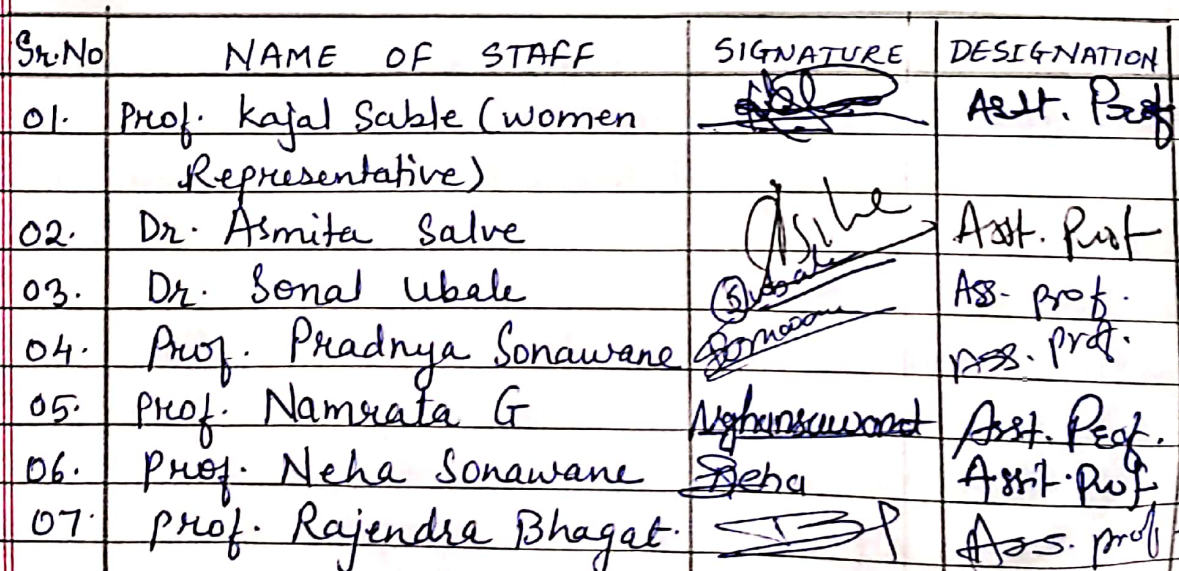 Sr.No NAME OF STAFF SIGNATURE DESIGNATION
01. Prof. Kajal Sable (women Asst. Prof
Representative)
02. Dr. Asmita Salve Asst. Prof
03. Dr. Sonal Ubale Ass- prof.
04. Prof. Pradnya Sonawane Ass. prof.
05. Prof. Namrata G Asst. Prof.
06. Prof. Neha Sonawane Neha Assit. Prof
07. Prof. Rajendra Bhagat. Ass. prof